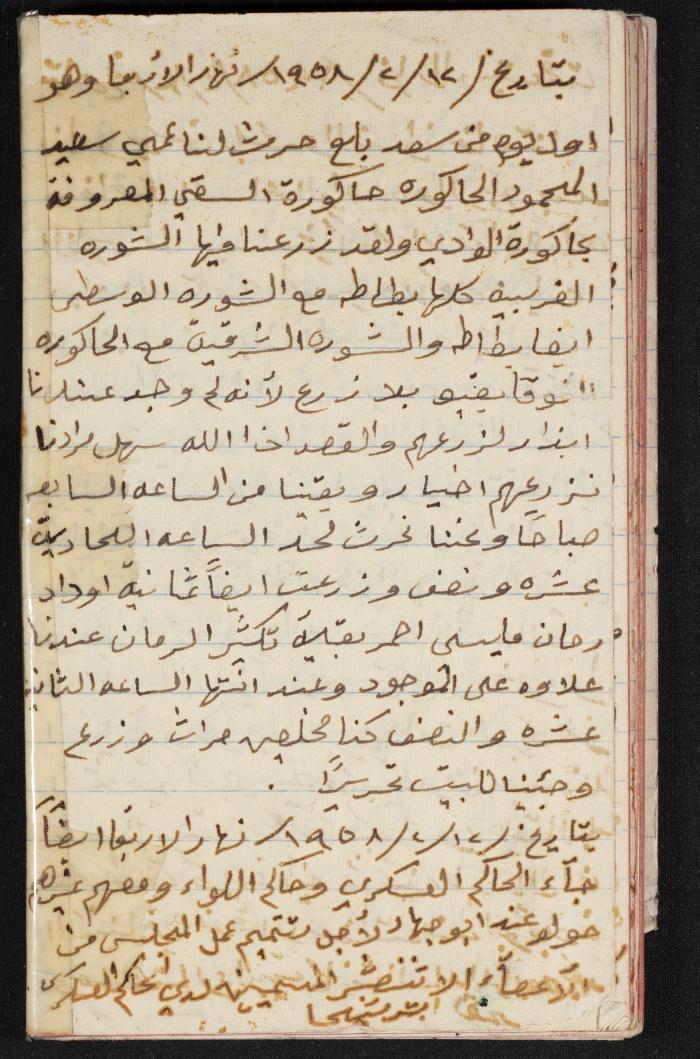 بتاريخ / ١٢ / ٢ / ١٩٥٨ / نهار الاربعا وهو
اول يوم من سعد بلع حرث لنا عمي سعيد
المحمود الحاكوره حاكورة السقي المعروفة
بحاكورة الوادي ولقد زرعنا فيها الشوره
الغربيه كلها بطاطه مع الشوره الوسطى
ايضا بطاطه والشوره الشرقية مع الحاكوره
الفوقا بقيو بلا زرع لأنه لم وجد عندنا
ابذار لزرعهم والقصد اذا الله سهل مرادنا
نزرعهم اخيار وبقينا من الساعه السابعه
صباحًا ونحنا نحرث لحد الساعه الحادية
عشره ونصف وزرعت ايضاً ثمانية اوداد
رمان مليسى احمر بقبلاً تكثر الرمان عندنا
علاوه على الموجود وعند انتها الساعه الثانيه
عشره والنصف كنا مخلصين حراث وزرع
وجئينا للبيت تحريرًا .
بتاريخ / ١٢ / ٢ / ١٩٥٨ / نهار الاربعا ايضاً
جآء الحاكم العسكري وحاكم اللواء ومعهم غيرهم
حولو عند ابو جهاد لأجل تتميم عمل المجلس من
الأعضآء الاتنعشر المسميين لدي الحاكم العسكري